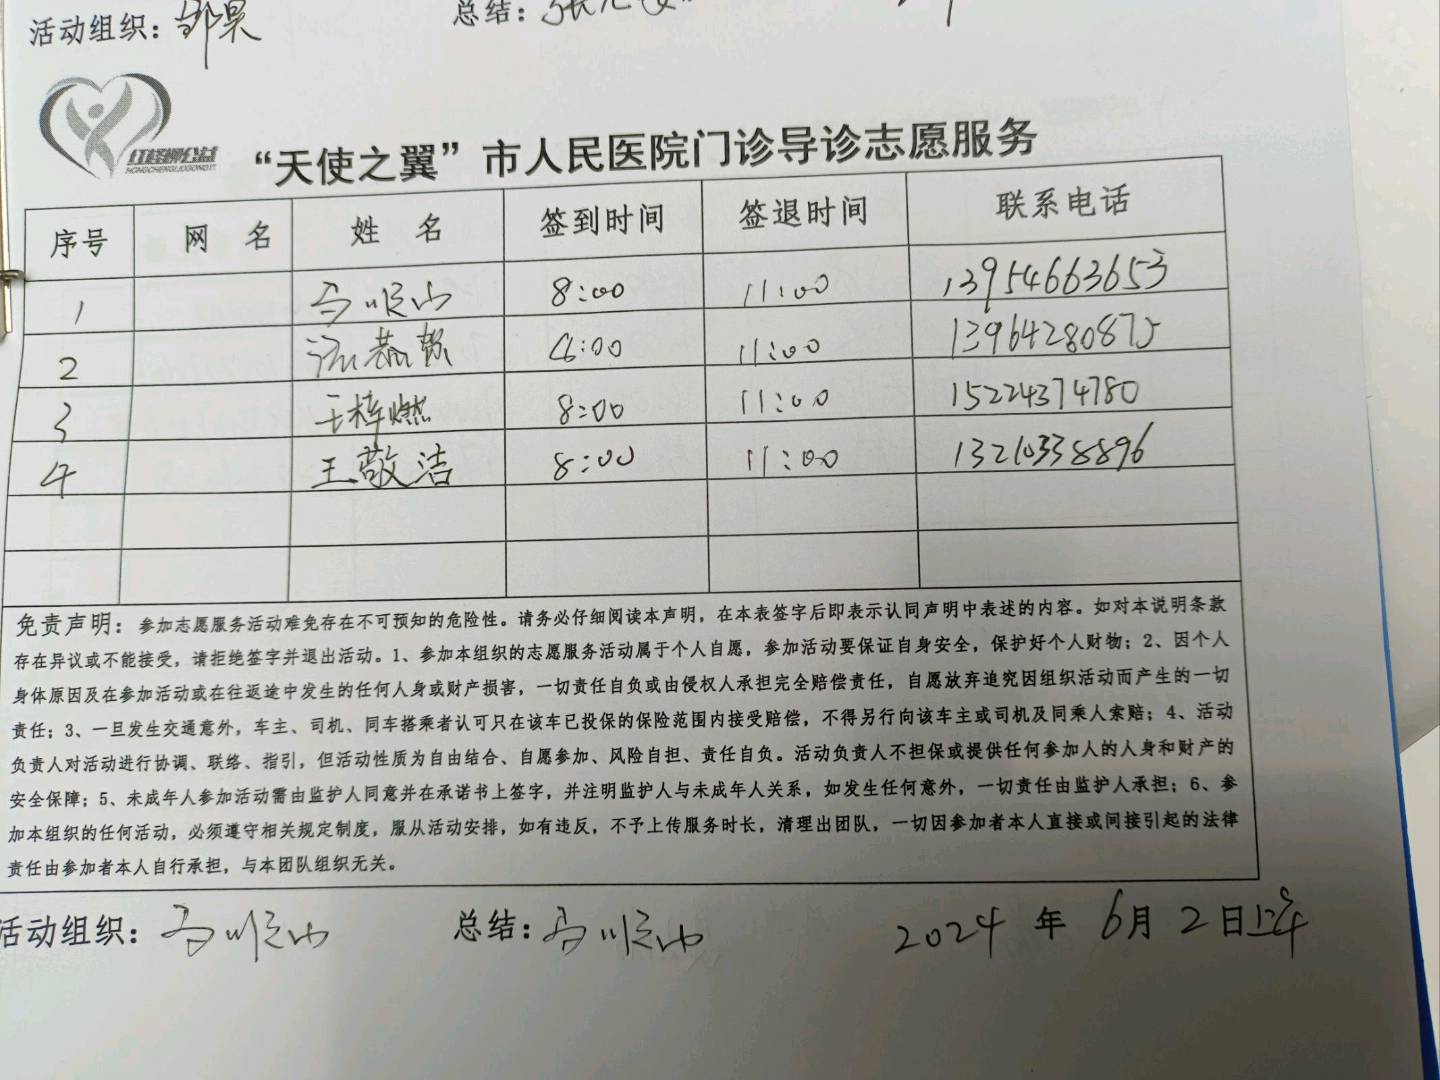 活动组织：邹昊 总结：
红柽柳公益
HONGCHENGLIUGONGYI
“天使之翼”市人民医院门诊导诊志愿服务
序号 网 名 姓 名 签到时间 签退时间 联系电话
1 8:00 11:00 13954663653
2 11:00 13964280875
3 王梓燃 8:00 11:00 15224374780
4 王敬洁 8:00 11:00 13210338896
免责声明：参加志愿服务活动难免存在不可预知的危险性。请务必仔细阅读本声明，在本表签字后即表示认同声明中表述的内容。如对本说明条款
存在异议或不能接受，请拒绝签字并退出活动。1、参加本组织的志愿服务活动属于个人自愿，参加活动要保证自身安全，保护好个人财物；2、因个人
身体原因及在参加活动或在往返途中发生的任何人身或财产损害，一切责任自负或由侵权人承担完全赔偿责任，自愿放弃追究因组织活动而产生的一切
责任；3、一旦发生交通意外，车主、司机、同车搭乘者认可只在该车已投保的保险范围内接受赔偿，不得另行向该车主或司机及同乘人索赔；4、活动
负责人对活动进行协调、联络、指引，但活动性质为自由结合、自愿参加、风险自担、责任自负。活动负责人不担保或提供任何参加人的人身和财产的
安全保障；5、未成年人参加活动需由监护人同意并在承诺书上签字，并注明监护人与未成年人关系，如发生任何意外，一切责任由监护人承担；6、参
加本组织的任何活动，必须遵守相关规定制度，服从活动安排，如有违反，不予上传服务时长，清理出团队，一切因参加者本人直接或间接引起的法律
责任由参加者本人自行承担，与本团队组织无关。
活动组织： 总结： 2024 年 6月 2日上午